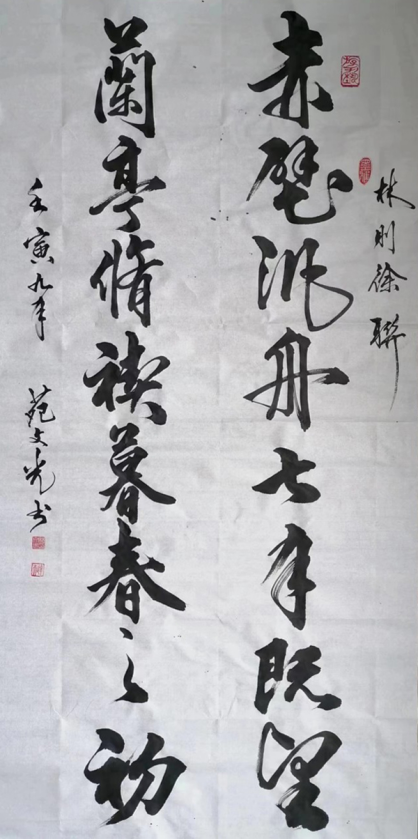 林則徐聯
赤壁泛舟七月既望
蘭亭脩禊暮春之初
壬寅九月 苑文光书